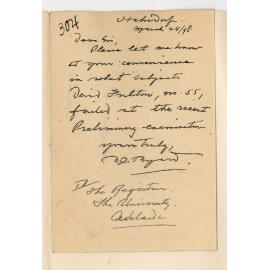 304
Hahndorf
March 24/98
Dear Sir,
Please let me know
at your convenience
in what subjects
David Fulton, no. 55,
failed at the recent
Preliminary examination
yours truly,
D. J. Byard
To
The Registrar
The University
Adelaide